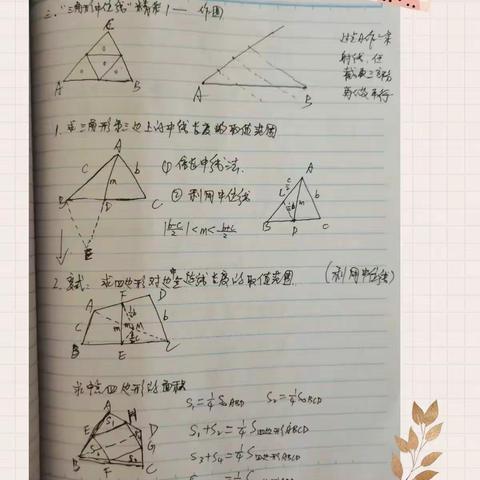 三、"三角形中位线"精彩1—作图
C
A B
A B
过点A作一条
射线,任
截取三等份
再作平行
1. 求三角形第三边上的中线长度的取值范围
A
c b
m
B D C
E
① 倍长中线法.
② 利用中位线
|b-c/2| < m < b+c/2
A
b
m
B D C
2. 变式:求四边形对边中点连线长度的取值范围. (利用中位线)
A F D
c m M b
B E C
求中点四边形的面积
A H
E S₁ D
G
B F C
S₁=¼S△ABD S₂=¼S△BCD
S₁+S₂=¼S四边形ABCD
S₃+S₄=¼S四边形ABCD